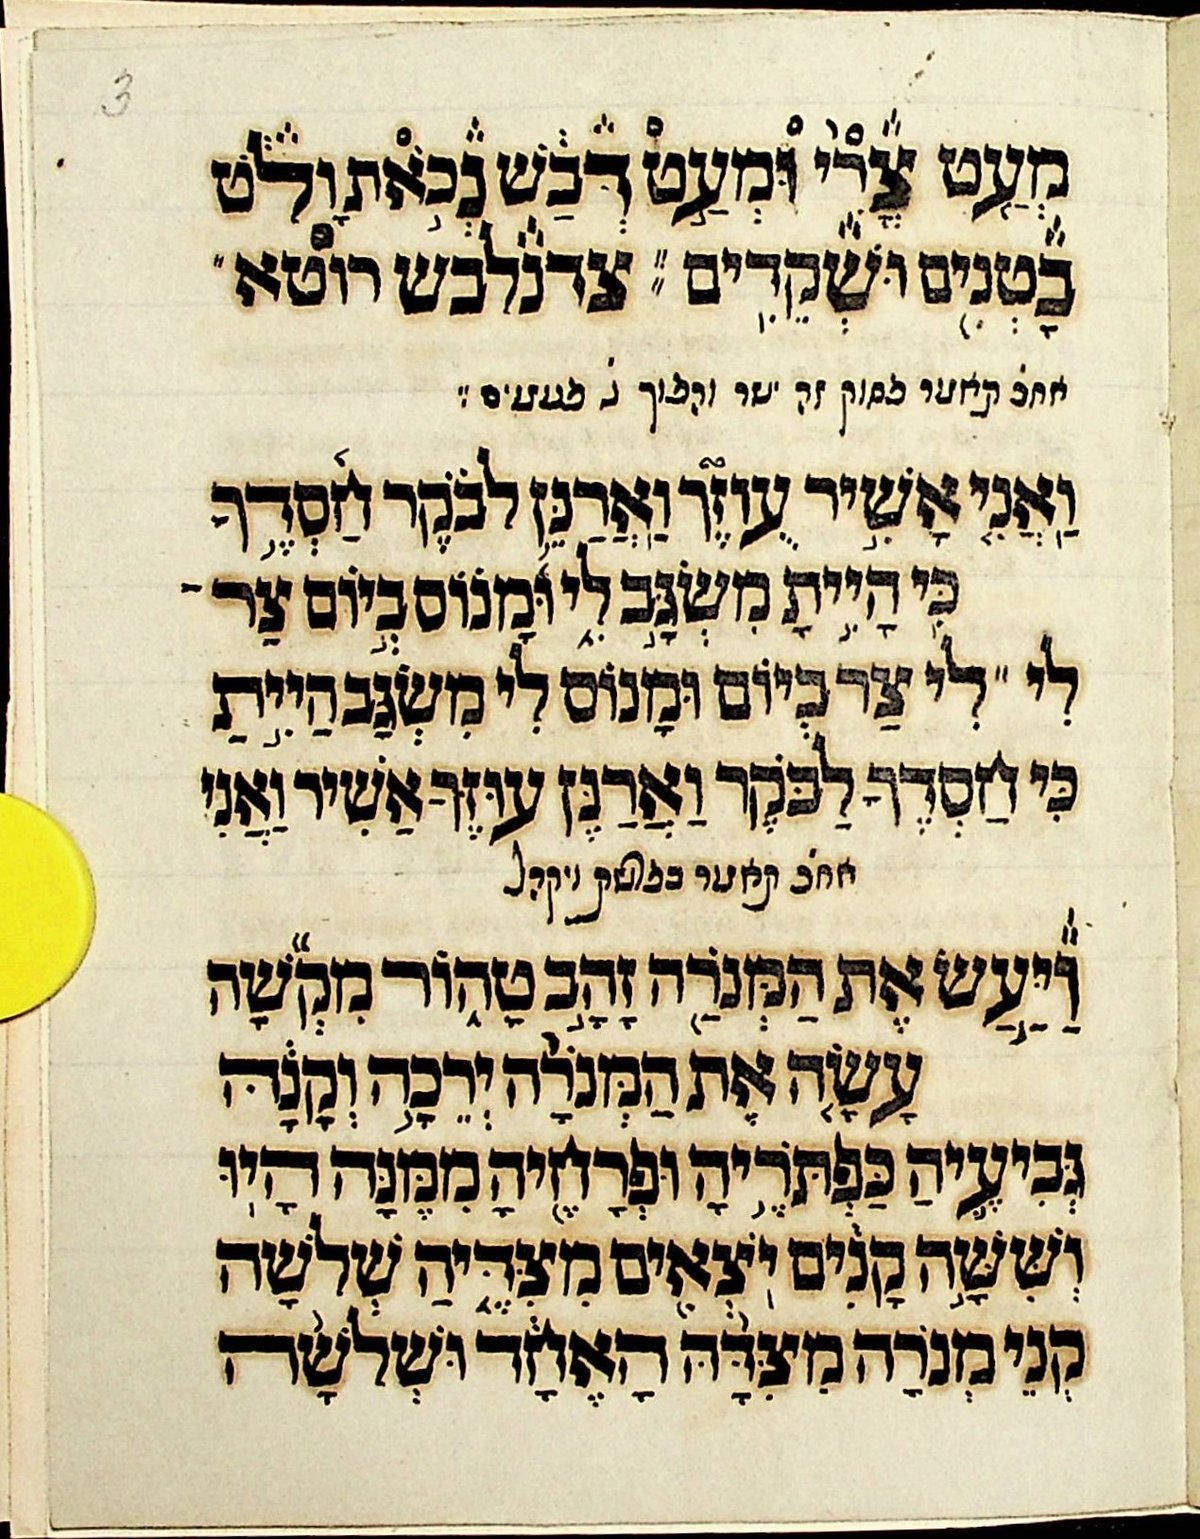 3
מְעַט צֳרִי וּמְעַט דְּבַשׁ נְכֹאת וָלֹט
בָּטְנִים וּשְׁקֵדִים ״ צדנלבש רוטא ״
אח״כ קאער פסוק זה ישר והפוך
וַאֲנִי אָשִׁיר עֻוזֶּךָ וַאֲרַנֵּן לבֹּקֶר חַסְדֶּךָ
כִּי הָיִיתָ מִשְׂגָּב לִי וּמָנוֹס בְּיוֹם צַר -
לִי ״ לִי צַר בְּיוֹם וּמָנוֹס לִי מִשְׂגָּב הַיִיתַ
כִּי חַסְדֶּךָ לַבֹּקֶר וַאֲרַנֶּן עוּזֶּךָ אַשִׁיר וַאֲנִי
אח״כ קאער
וַיַּעַשׂ אֶת הַמְּנֹרַה זָהָב טָהוֹר מִקְשָׁה
עָשָׂה אֶת הַמְּנֹרָה יְרֵכָה וְקָנָהּ
גְּבִיעֶיהַ כַּפְתֹּרֶיהָ וּפְרָחֶיהָ מִמֶּנָּה הָיוּ
וְשִׁשָּׁה קָנִים יֹצְאִים מִצִּדֶּיהַ שְׁלשָׁה
קְנֵי מְנֹרָה מִצִּדָּהּ הָאֶחָד וּשְׁלשָׁה